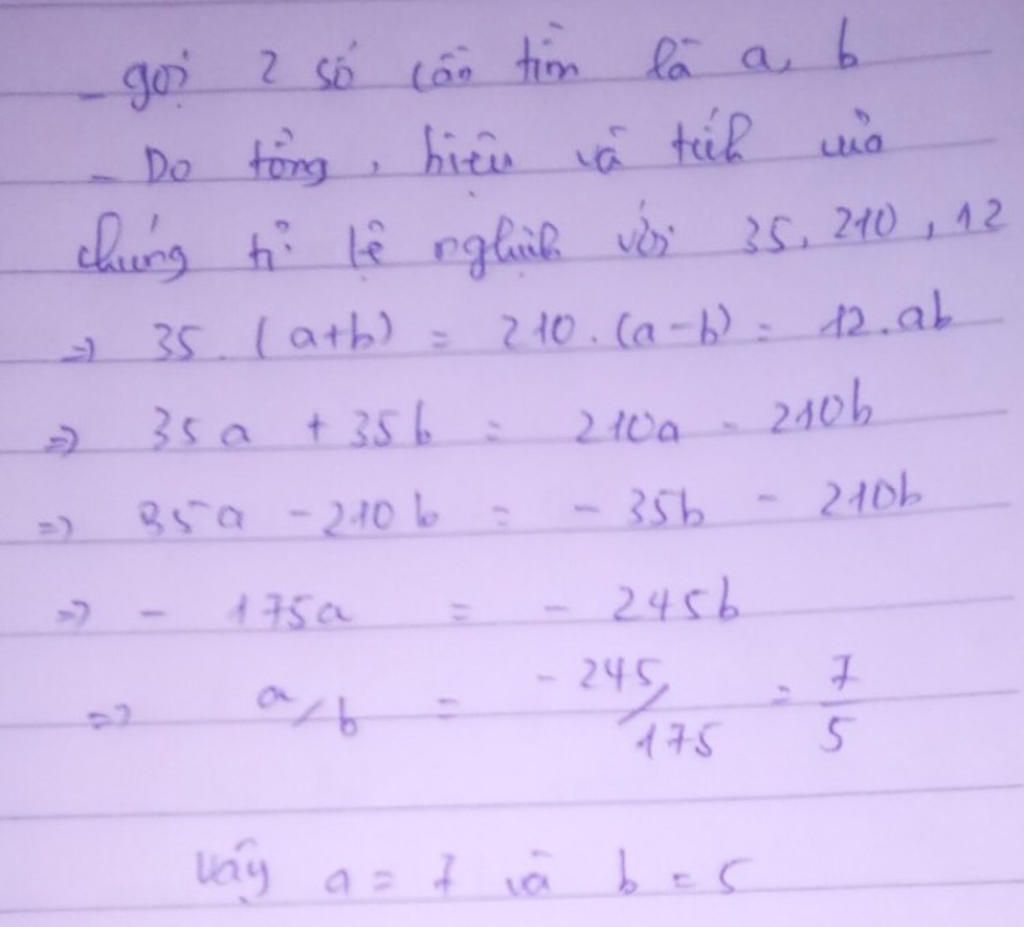 - gọi 2 số cần tìm là a, b
- Do tổng, hiệu và tích của
chúng tỉ lệ nghịch với 35, 210, 12
=> 35. (a+b) = 210. (a-b) = 12.ab
=> 35a + 35b = 210a - 210b
=> 35a - 210b = - 35b - 210b
=> - 175a = - 245b
=> a/b = - 245/175 = 7/5
Vậy a = 7 và b = 5